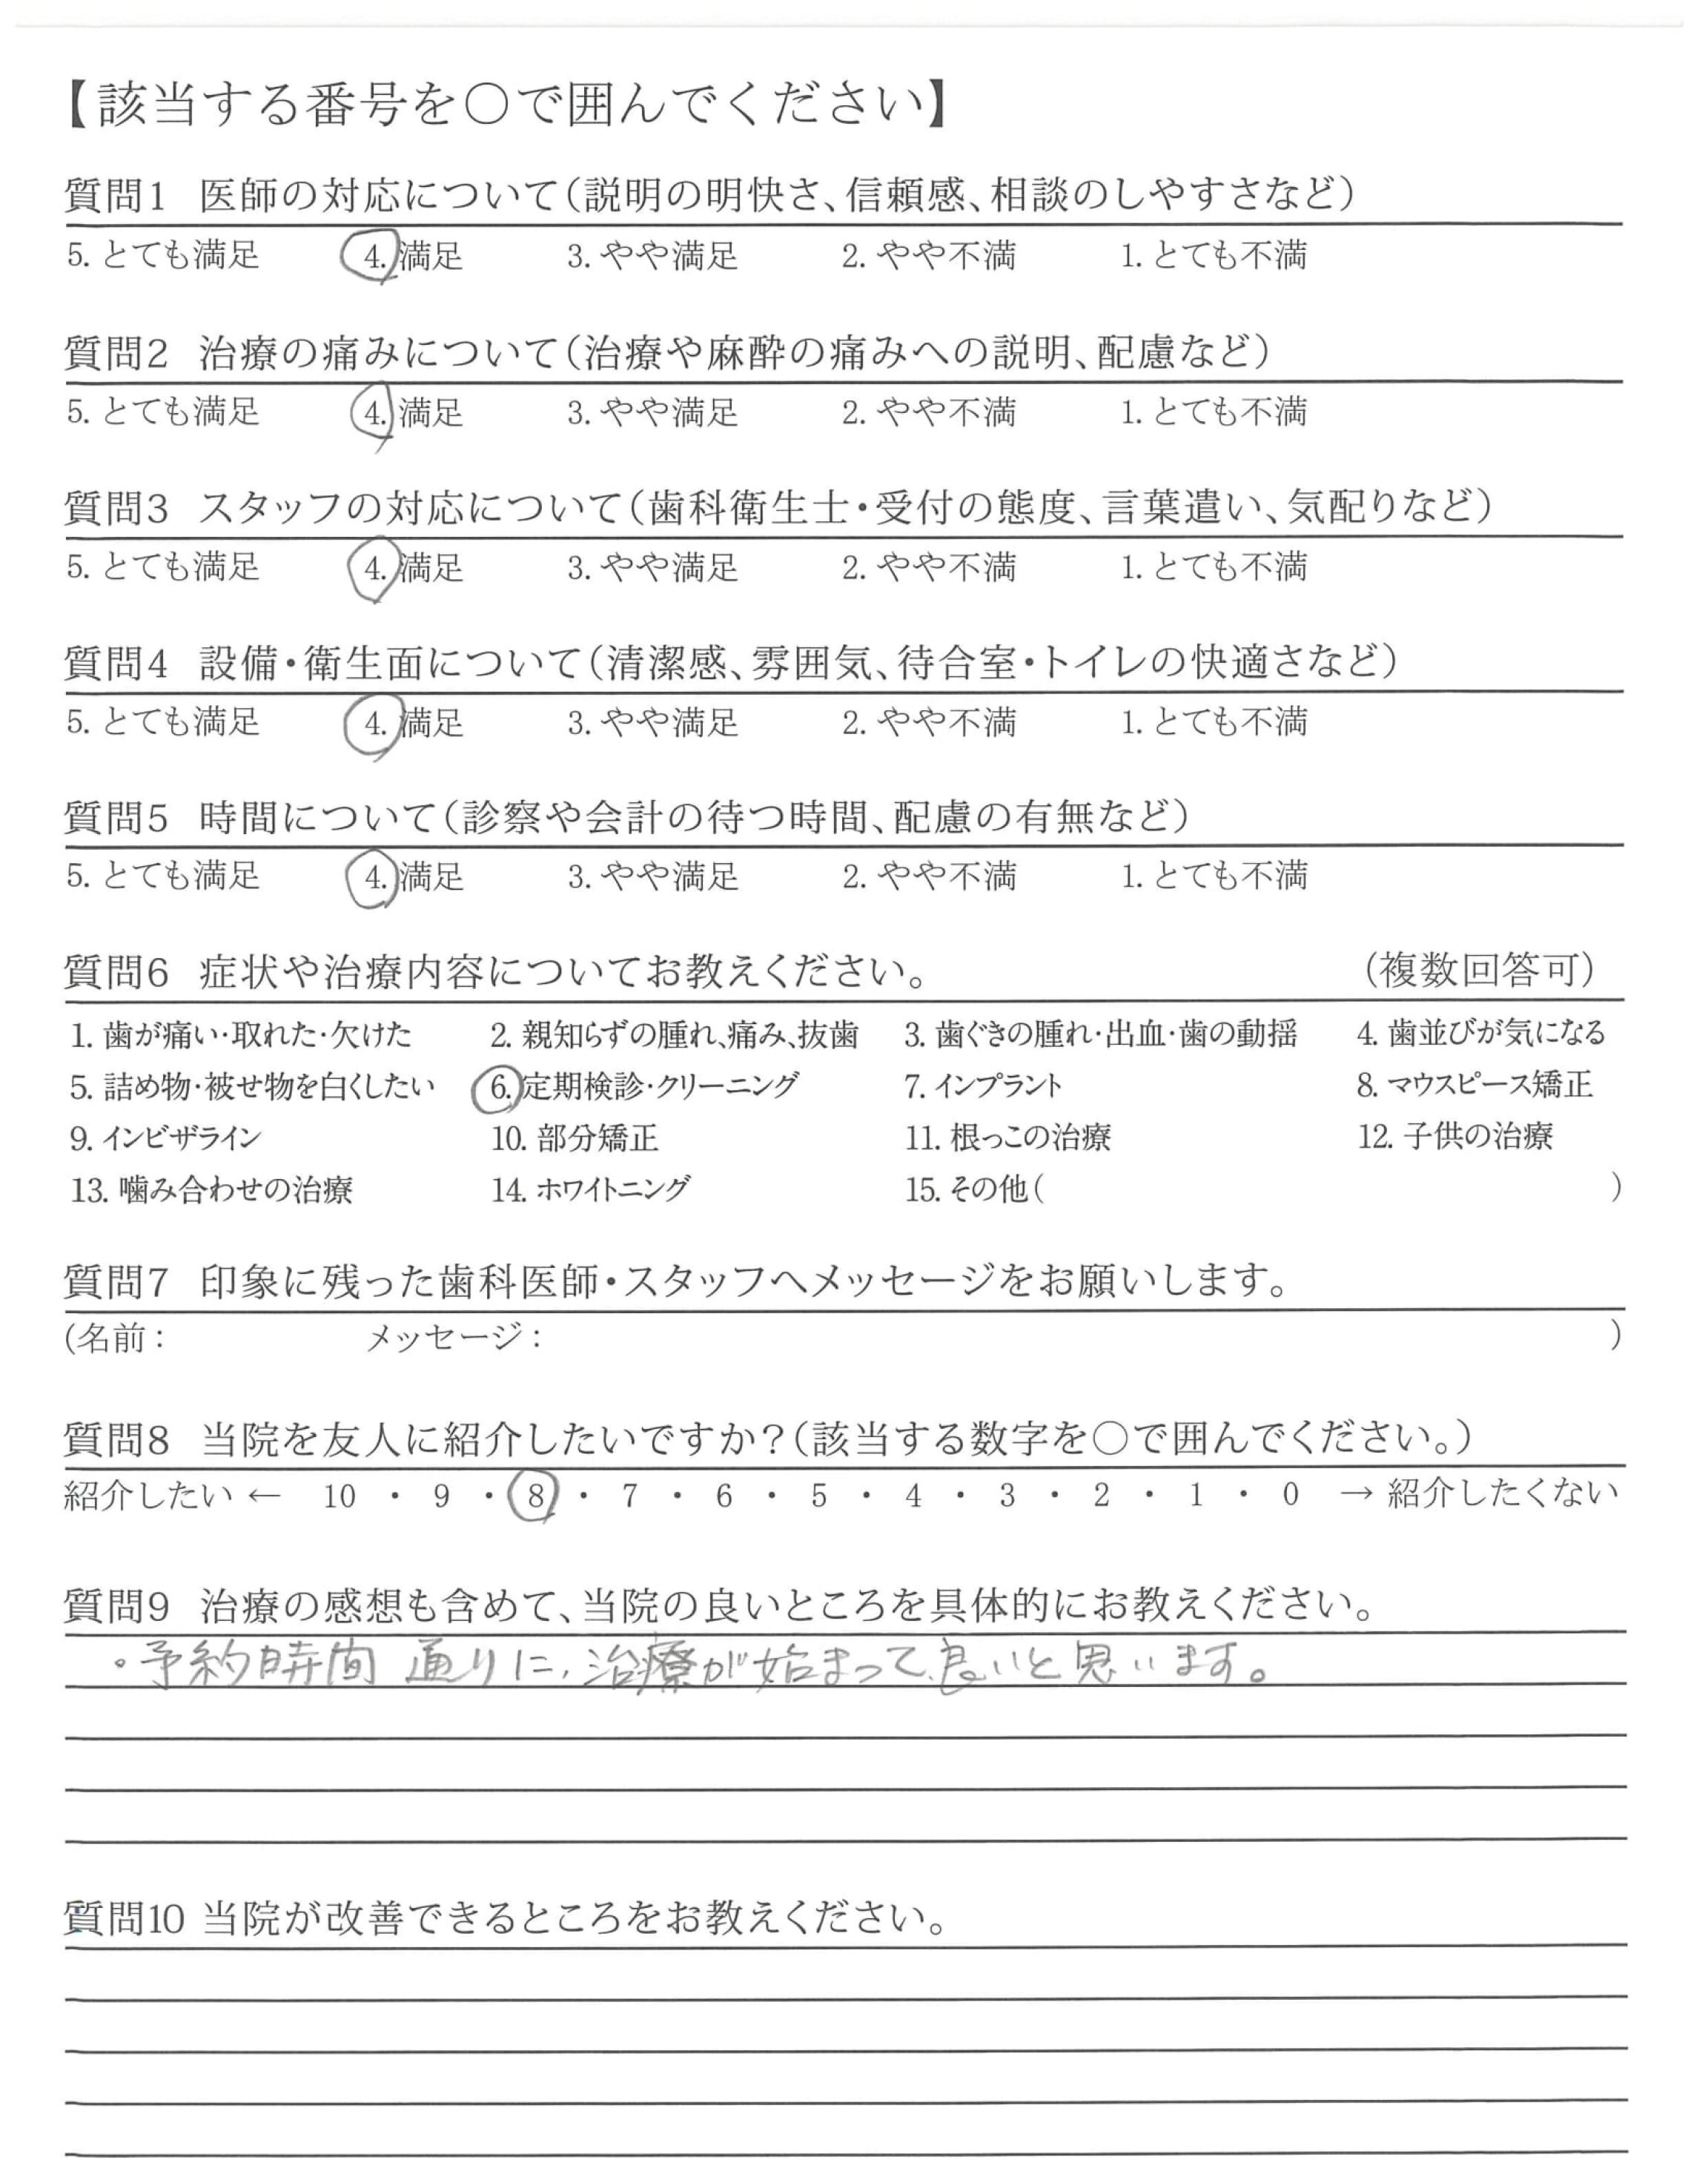 【該当する番号を○で囲んでください】
質問1 医師の対応について(説明の明快さ、信頼感、相談のしやすさなど)
5. とても満足 4. 満足 3. やや満足 2. やや不満 1. とても不満
質問2 治療の痛みについて(治療や麻酔の痛みへの説明、配慮など)
5. とても満足 4. 満足 3. やや満足 2. やや不満 1. とても不満
質問3 スタッフの対応について(歯科衛生士・受付の態度、言葉遣い、気配りなど)
5. とても満足 4. 満足 3. やや満足 2. やや不満 1. とても不満
質問4 設備・衛生面について(清潔感、雰囲気、待合室・トイレの快適さなど)
5. とても満足 4. 満足 3. やや満足 2. やや不満 1. とても不満
質問5 時間について(診察や会計の待つ時間、配慮の有無など)
5. とても満足 4. 満足 3. やや満足 2. やや不満 1. とても不満
質問6 症状や治療内容についてお教えください。 (複数回答可)
1. 歯が痛い・取れた・欠けた 2. 親知らずの腫れ、痛み、抜歯 3. 歯ぐきの腫れ・出血・歯の動揺 4. 歯並びが気になる
5. 詰め物・被せ物を白くしたい 6. 定期検診・クリーニング 7. インプラント 8. マウスピース矯正
9. インビザライン 10. 部分矯正 11. 根っこの治療 12. 子供の治療
13. 噛み合わせの治療 14. ホワイトニング 15. その他( )
質問7 印象に残った歯科医師・スタッフへメッセージをお願いします。
(名前: メッセージ: )
質問8 当院を友人に紹介したいですか?(該当する数字を○で囲んでください。)
紹介したい ← 10 ・ 9 ・ 8 ・ 7 ・ 6 ・ 5 ・ 4 ・ 3 ・ 2 ・ 1 ・ 0 → 紹介したくない
質問9 治療の感想も含めて、当院の良いところを具体的にお教えください。
。予約時間 通りに、治療が始まって、良いと思います。
質問10 当院が改善できるところをお教えください。